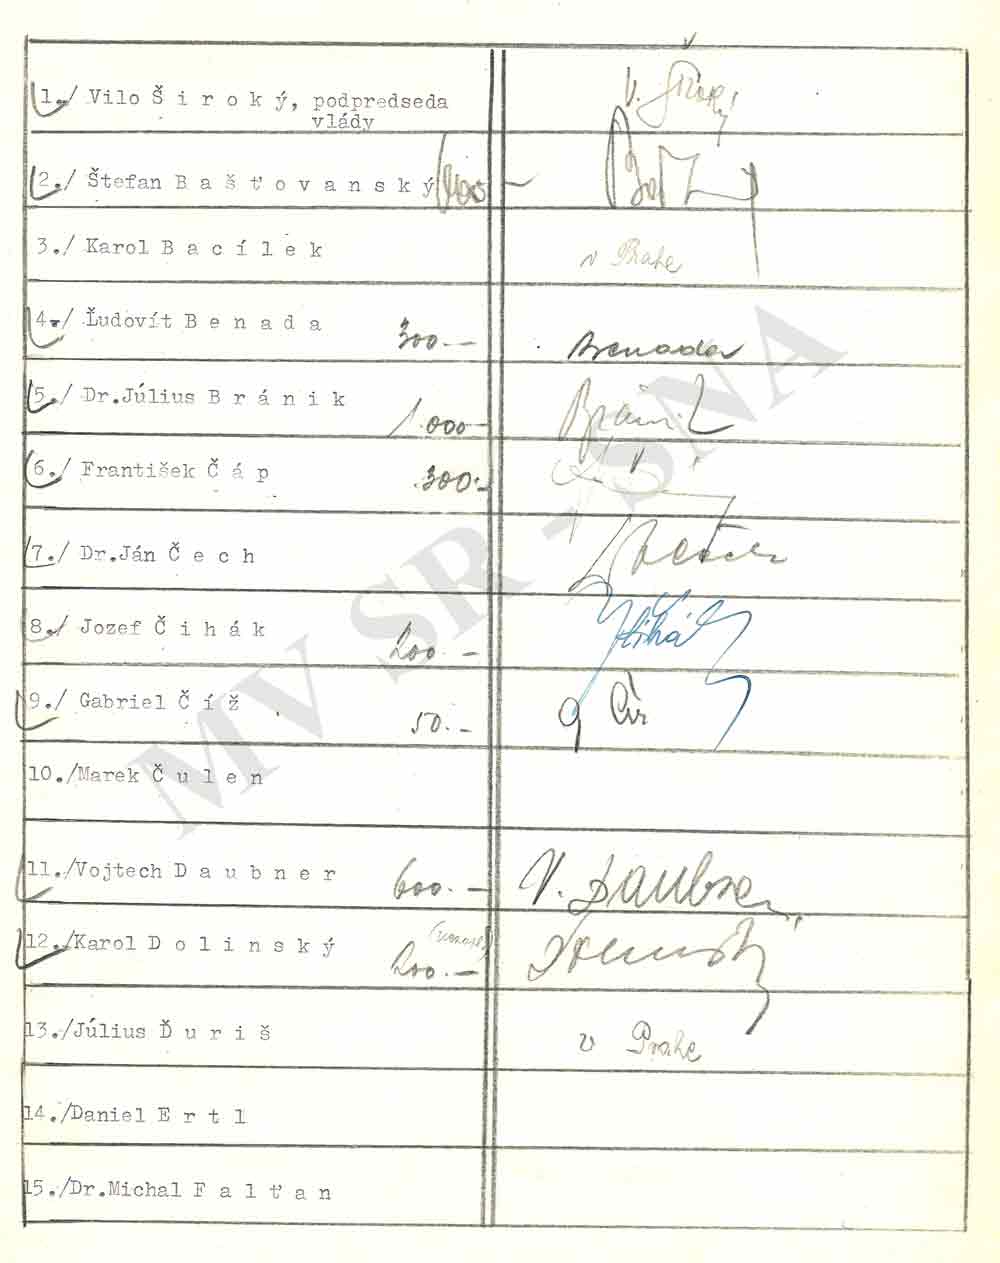 1./ Vilo Š i r o k ý, podpredseda
vlády
V. Široký
2./ Štefan B a š ť o v a n s k ý
3./ Karol B a c í l e k
v Prahe
4./ Ľudovít B e n a d a 300.—
Benada
5./ Dr.Július B r á n i k 1.000—
Bránik
6./ František Č á p 300.-
7./ Dr.Ján Č e c h
8./ Jozef Č i h á k 200.—
Čihák
9./ Gabriel Č í ž 50.—
G Číž
10./Marek Č u l e n
11./Vojtech D a u b n e r 600.—
V. Daubner
12./Karol D o l i n s k ý 200.—
Dolinský
13./Július Ď u r i š
v Prahe
14./Daniel E r t l
15./Dr.Michal F a l ť a n
MV SR - SNA